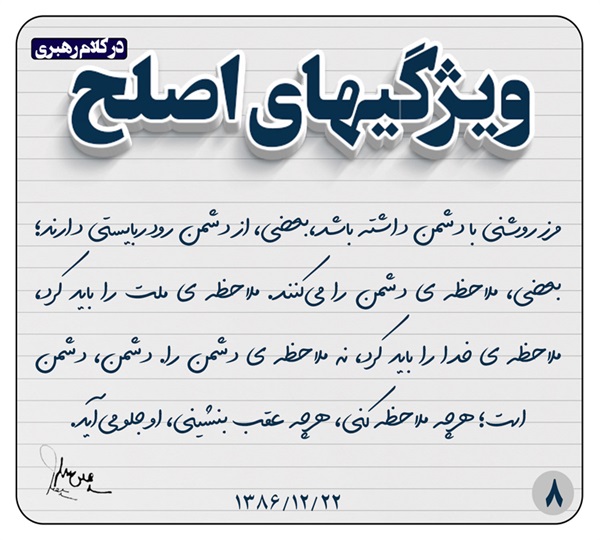 در کلام رهبری
ویژگیهای اصلح
مرز روشنی با دشمن داشته باشد، بعضی، از دشمن رودربایستی دارند؛
بعضی، ملاحظه ی دشمن را می‌کنند. ملاحظه ی ملت را باید کرد،
ملاحظه ی خدا را باید کرد، نه ملاحظه ی دشمن را. دشمن، دشمن
است؛ هرچه ملاحظه کنی، هرچه عقب بنشینی، او جلو می‌آید.
۱۳۸۶/۱۲/۲۲
۸